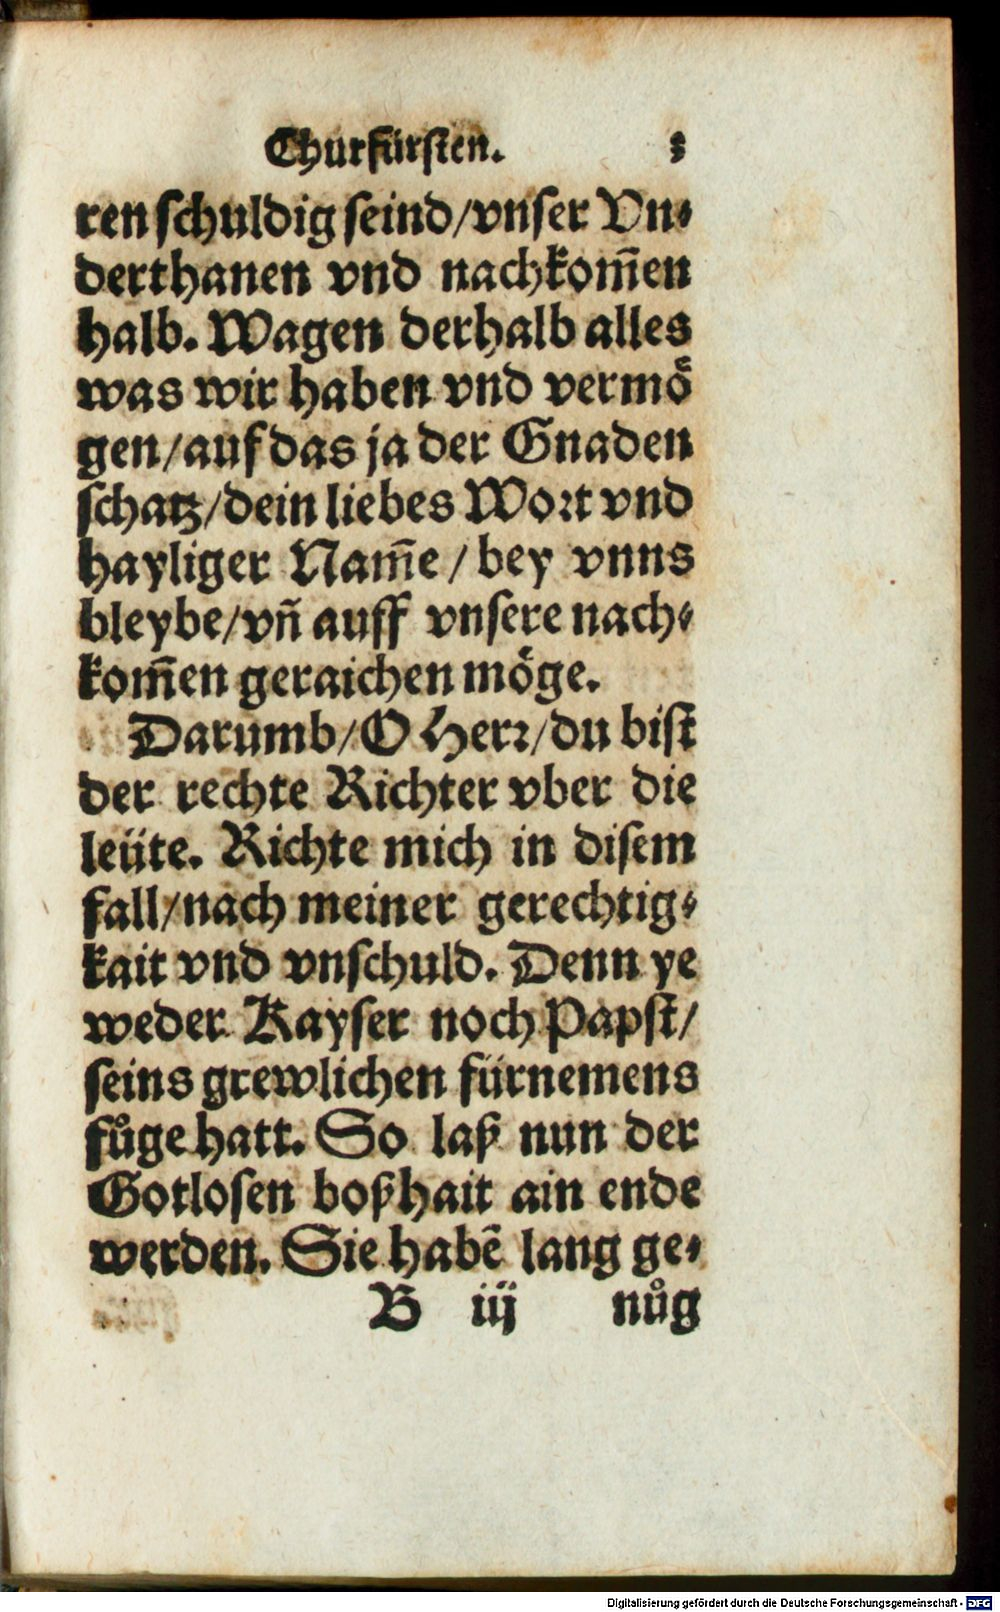 Churfürsten.
ren schuldig seind/vnser Vn⸗
derthanen vnd nachkom̄en
halb. Wagen derhalb alles
was wir haben vnd vermoͤ
gen/auf das ja der Gnaden
schatz/dein liebes Wort vnd
hayliger Nam̄e/bey vnns
bleybe/vn̄ auff vnsere nach⸗
kom̄en geraichen moͤge.
Darumb/O Herr/du bist
der rechte Richter vber die
leüte. Richte mich in disem
fall/nach meiner gerechtig⸗
kait vnd vnschuld. Denn ye
weder Kayser noch Papst/
seins grewlichen fürnemens
fůge hatt. So laß nun der
Gotlosen boßhait ain ende
werden. Sie habē lang ge⸗
B iij nůg
Digitalisierung gefördert durch die Deutsche Forschungsgemeinschaft - DFG